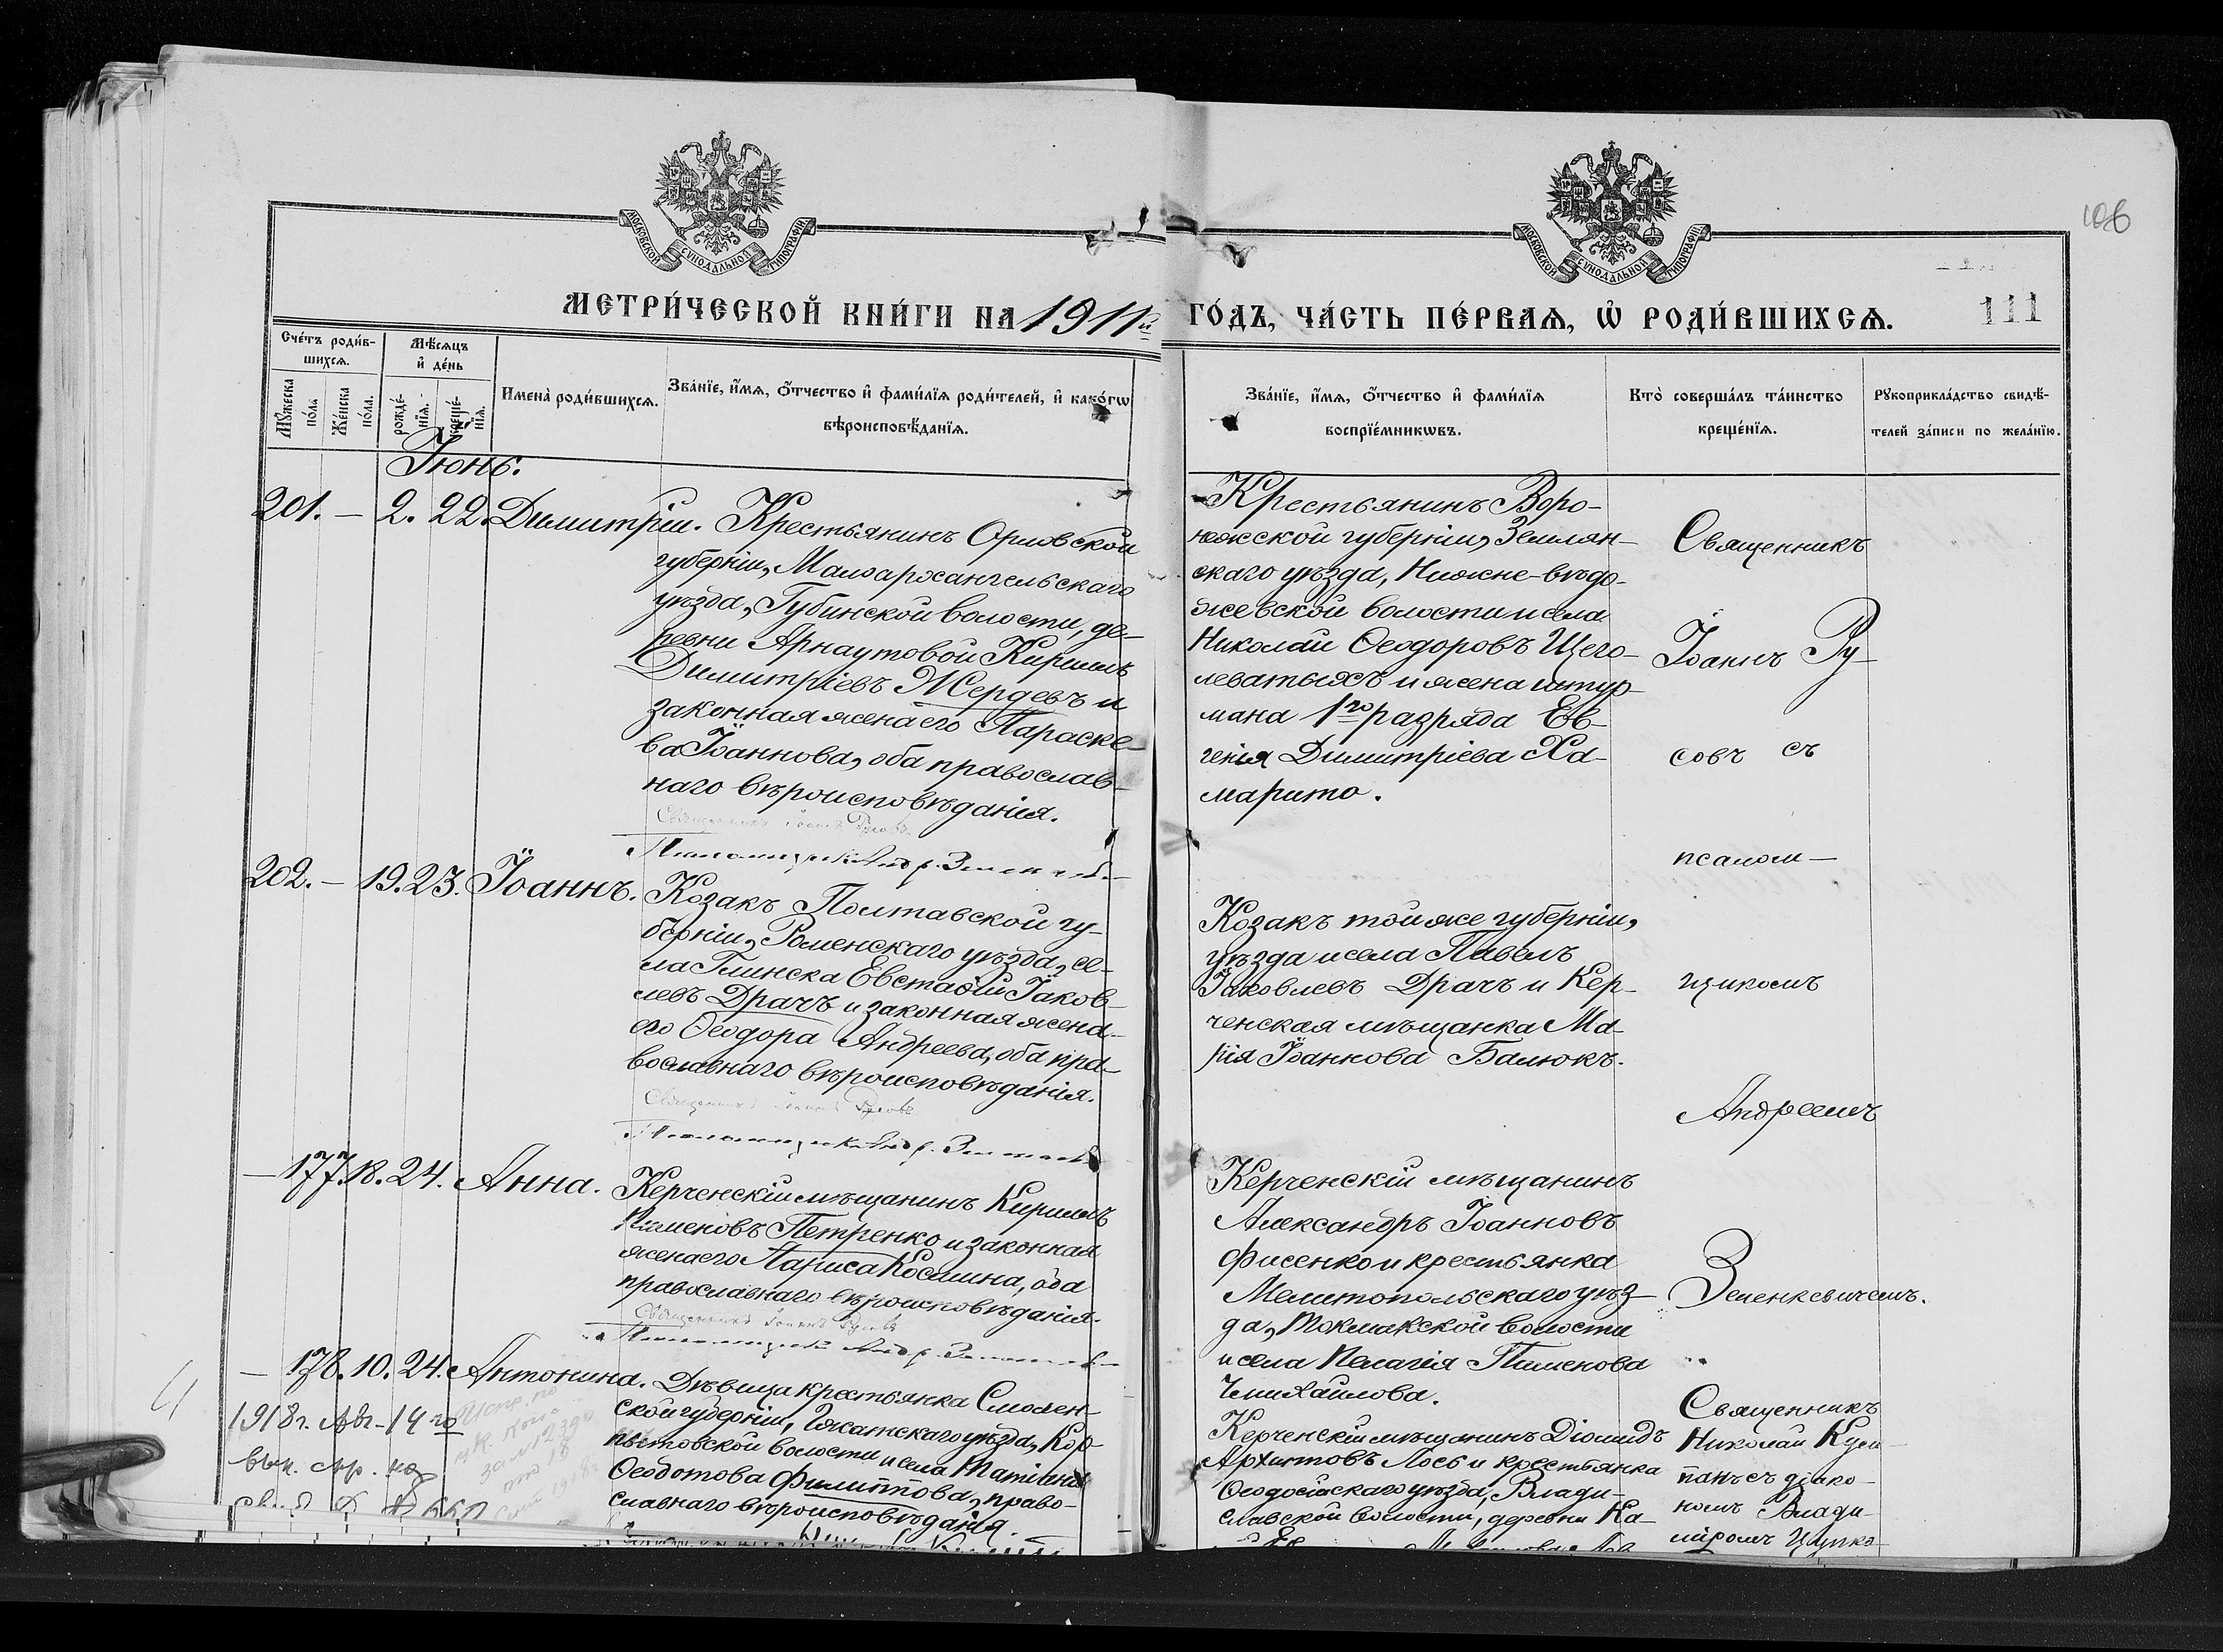 106
МОСКОВСКОЙ СѴНОДАЛЬНОЙ ТИПОГРАФІИ
МОСКОВСКОЙ СѴНОДАЛЬНОЙ ТИПОГРАФІИ
МЕТРИ́ЧЕСКОЙ КНИ́ГИ НА 1911й ГО́ДЪ, ЧА́СТЬ ПЕ́РВАѦ, Ѡ҆ РОДИ́ВШИХСѦ.
111
Сче́тъ роди́в-
шихсѧ.
Мꙋ́жеска
по́ла
Же́нска
по́ла.
Мѣ́сѧцъ
и҆ де́нь
рожде́-
нїѧ.
креще́-
нїѧ.
Имена̀ роди́вшихсѧ.
Зва́нїе, и҆́мѧ, ѻ҆́тчество и҆ фами́лїѧ роди́телей, и҆ како́гѡ
вѣроисповѣ́данїѧ.
Зва́нїе, и҆́мѧ, ѻ҆́тчество и҆ фами́лїѧ
воспрїе́мникѡвъ.
Кто̀ соверша́лъ та́инство
креще́нїѧ.
Рꙋкоприкла́дство свидѣ́-
телей за́писи по жела́нїю.
Іюнь:
201. — 2. 22. Димитрій.
Крестьянинъ Орловской
губерніи, Малоархангельскаго
уѣзда, Губинской волости, де-
ревни Арнаутовой Кириллъ
Димитріевъ Жердевъ и
законная жена его Параске-
ва Іоаннова, оба православ-
наго вѣроисповѣданія.
Священникъ Іоаннъ Русовъ
Псаломщикъ Андр. Зененкев.
Крестьянинъ Воро-
нежской губерніи, Землян-
скаго уѣзда, Нижне-вѣдо-
жевской волости и села
Николай Ѳеодоровъ Щего-
леватыхъ и жена штур-
мана 1го разряда Ев-
генія Димитріева Ха-
марито.
202. — 19. 23. Іоаннъ.
Козакъ Полтавской гу-
берніи, Роменскаго уѣзда, се-
ла Глинска Евстаѳій Іаков-
левъ Драчъ и законная жена
его Ѳеодора Андреева, оба пра-
вославнаго вѣроисповѣданія.
Священникъ Іоаннъ Русовъ
Псаломщикъ Андр.
Козакъ той же губерніи,
уѣзда и села Павелъ
Іаковлевъ Драчъ и Кер-
ченская мѣщанка Ма-
рія Іоаннова Балюкъ.
— 177. 18. 24. Анна.
Керченскій мѣщанинъ Кириллъ
Пименовъ Петренко и законная
жена его Лариса Космина, оба
православнаго вѣроисповѣданія.
Священникъ Іоаннъ Русовъ
Псаломщикъ Андр.
Керченскій мѣщанинъ
Александръ Іоанновъ
Фисенко и крестьянка
Мелитопольскаго уѣз-
да, Токмакской волости
и села Пелагія Пименова
Священникъ
Іоаннъ Ру-
совъ съ
псалом-
щикомъ
Андреемъ
Зененкевичемъ.
— 178. 10. 24. Антонина.
Дѣвица крестьянка Смолен-
ской губерніи, Гжатскаго уѣзда, Кор-
пытовской волости и села Татіана
Ѳеодотова Филиппова, право-
славнаго вѣроисповѣданія.
Керченскій мѣщанинъ Діомидъ
Лось и крестьянка
Ѳеодосійскаго уѣзда, Влади-
славской волости, деревни Ка-
Священникъ
Николай Кум-
панъ съ діако-
номъ Влади-
міромъ Цупко-
1918 г. Авг. 14 го